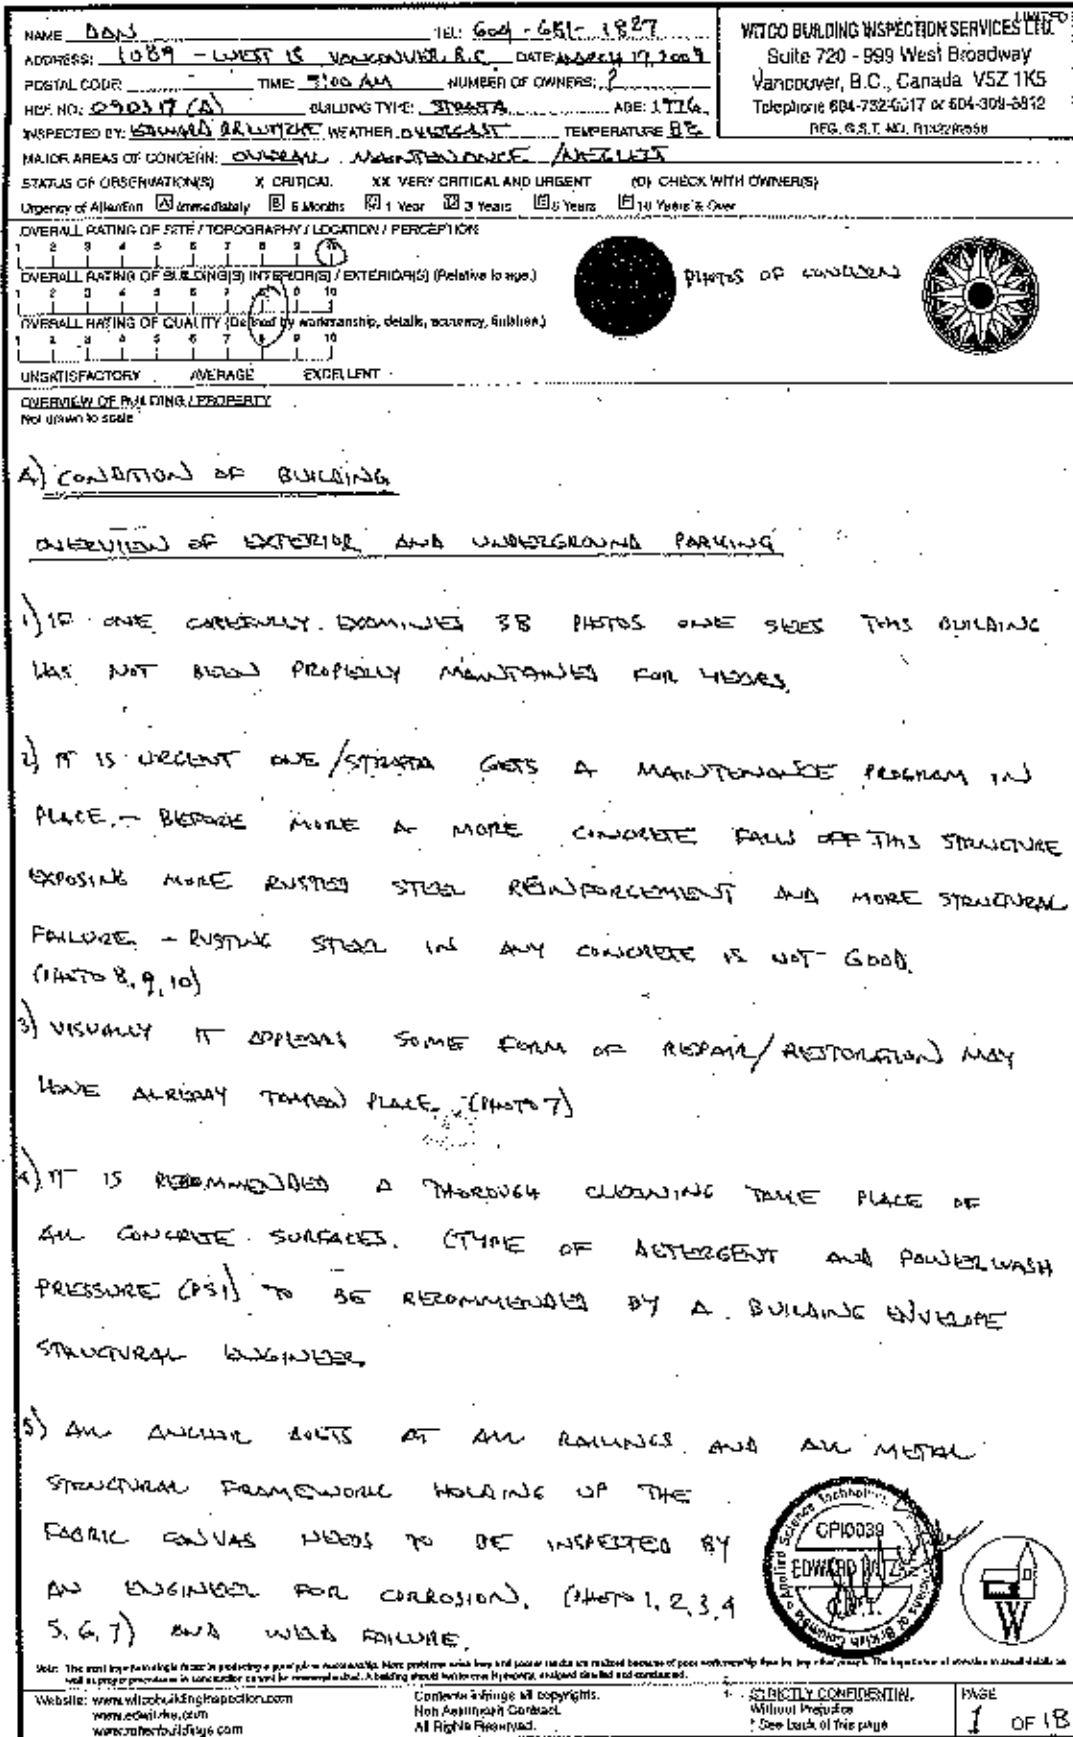 NAME DAN TEL: 604-681-1827
ADDRESS: 1089 - WEST 15 VANCOUVER, B.C. DATE: MARCH 17, 2009
POSTAL CODE: TIME: 9:00 AM NUMBER OF OWNERS: ?
REF. NO: 090317 (A) BUILDING TYPE: STRATA AGE: 1976
INSPECTED BY: EDWARD WEATHER OVERCAST TEMPERATURE 8°C
MAJOR AREAS OF CONCERN: OVERALL MAINTENANCE / NEGLECT
STATUS OF OBSERVATION(S) X CRITICAL XX VERY CRITICAL AND URGENT (O) CHECK WITH OWNER(S)
Urgency of Attention A Immediately B 6 Months C 1 Year D 3 Years E 5 Years F 10 Years & Over
LIMITED
WITCO BUILDING INSPECTION SERVICES LTD.
Suite 720 - 999 West Broadway
Vancouver, B.C., Canada V5Z 1K5
Telephone 604-732-6317 or 604-309-6812
REG. G.S.T. NO.
OVERALL RATING OF SITE / TOPOGRAPHY / LOCATION / PERCEPTION
1 2 3 4 5 6 7 8 9 10
OVERALL RATING OF BUILDING(S) INTERIOR(S) / EXTERIOR(S) (Relative to age.)
1 2 3 4 5 6 7 8 9 10
OVERALL RATING OF QUALITY (Defined by workmanship, details, accuracy, finishes.)
1 2 3 4 5 6 7 8 9 10
UNSATISFACTORY AVERAGE EXCELLENT
PHOTOS OF CONCERN
OVERVIEW OF BUILDING / PROPERTY
Not drawn to scale
A) CONDITION OF BUILDING
OVERVIEW OF EXTERIOR AND UNDERGROUND PARKING
1) IF ONE CAREFULLY EXAMINES 38 PHOTOS ONE SEES THIS BUILDING
HAS NOT BEEN PROPERLY MAINTAINED FOR YEARS.
2) IT IS URGENT ONE/STRATA GETS A MAINTENANCE PROGRAM IN
PLACE. - BEFORE MORE & MORE CONCRETE FALLS OFF THIS STRUCTURE
EXPOSING MORE RUSTED STEEL REINFORCEMENT AND MORE STRUCTURAL
FAILURE. - RUSTING STEEL IN ANY CONCRETE IS NOT GOOD.
(PHOTO 8, 9, 10)
3) VISUALLY IT APPEARS SOME FORM OF REPAIR/RESTORATION MAY
HAVE ALREADY TAKEN PLACE. (PHOTO 7)
4) IT IS RECOMMENDED A THOROUGH CLEANING TAKE PLACE OF
ALL CONCRETE SURFACES. (TYPE OF DETERGENT AND POWERWASH
PRESSURE (PSI) TO BE RECOMMENDED BY A BUILDING ENVELOPE
STRUCTURAL ENGINEER.
5) ALL ANCHOR BOLTS AT ALL RAILINGS AND ALL METAL
STRUCTURAL FRAMEWORK HOLDING UP THE
FABRIC CANVAS NEEDS TO BE INSPECTED BY
AN ENGINEER FOR CORROSION. (PHOTO 1, 2, 3, 4
5, 6, 7) AND WELD FAILURE.
Applied Science Technologists of British Columbia
CPI0039
EDWARD WITZKE
C.P.I.
W
Website: www.witcobuildinginspection.com
Contents infringe all copyrights.
Non Assignment Contract.
All Rights Reserved.
STRICTLY CONFIDENTIAL.
Without Prejudice
* See back of this page
PAGE
1 OF 18